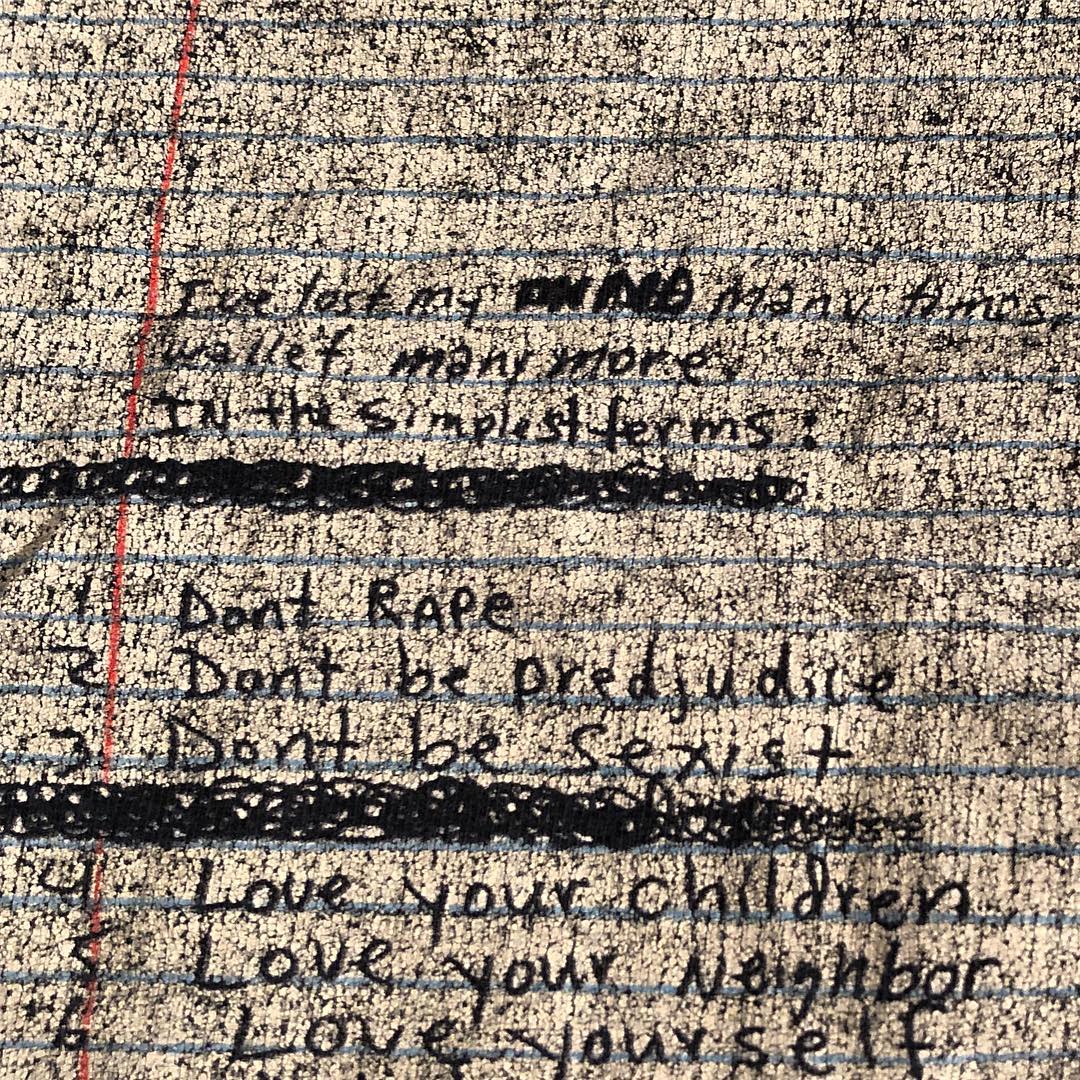 I've lost my many times,
wallet many more.
IN the simplest terms:
1 Dont RAPe
2 Dont be predjudice
3 Dont be Sexist
4 Love your children
5 Love your Neighbor
6 Love yourself